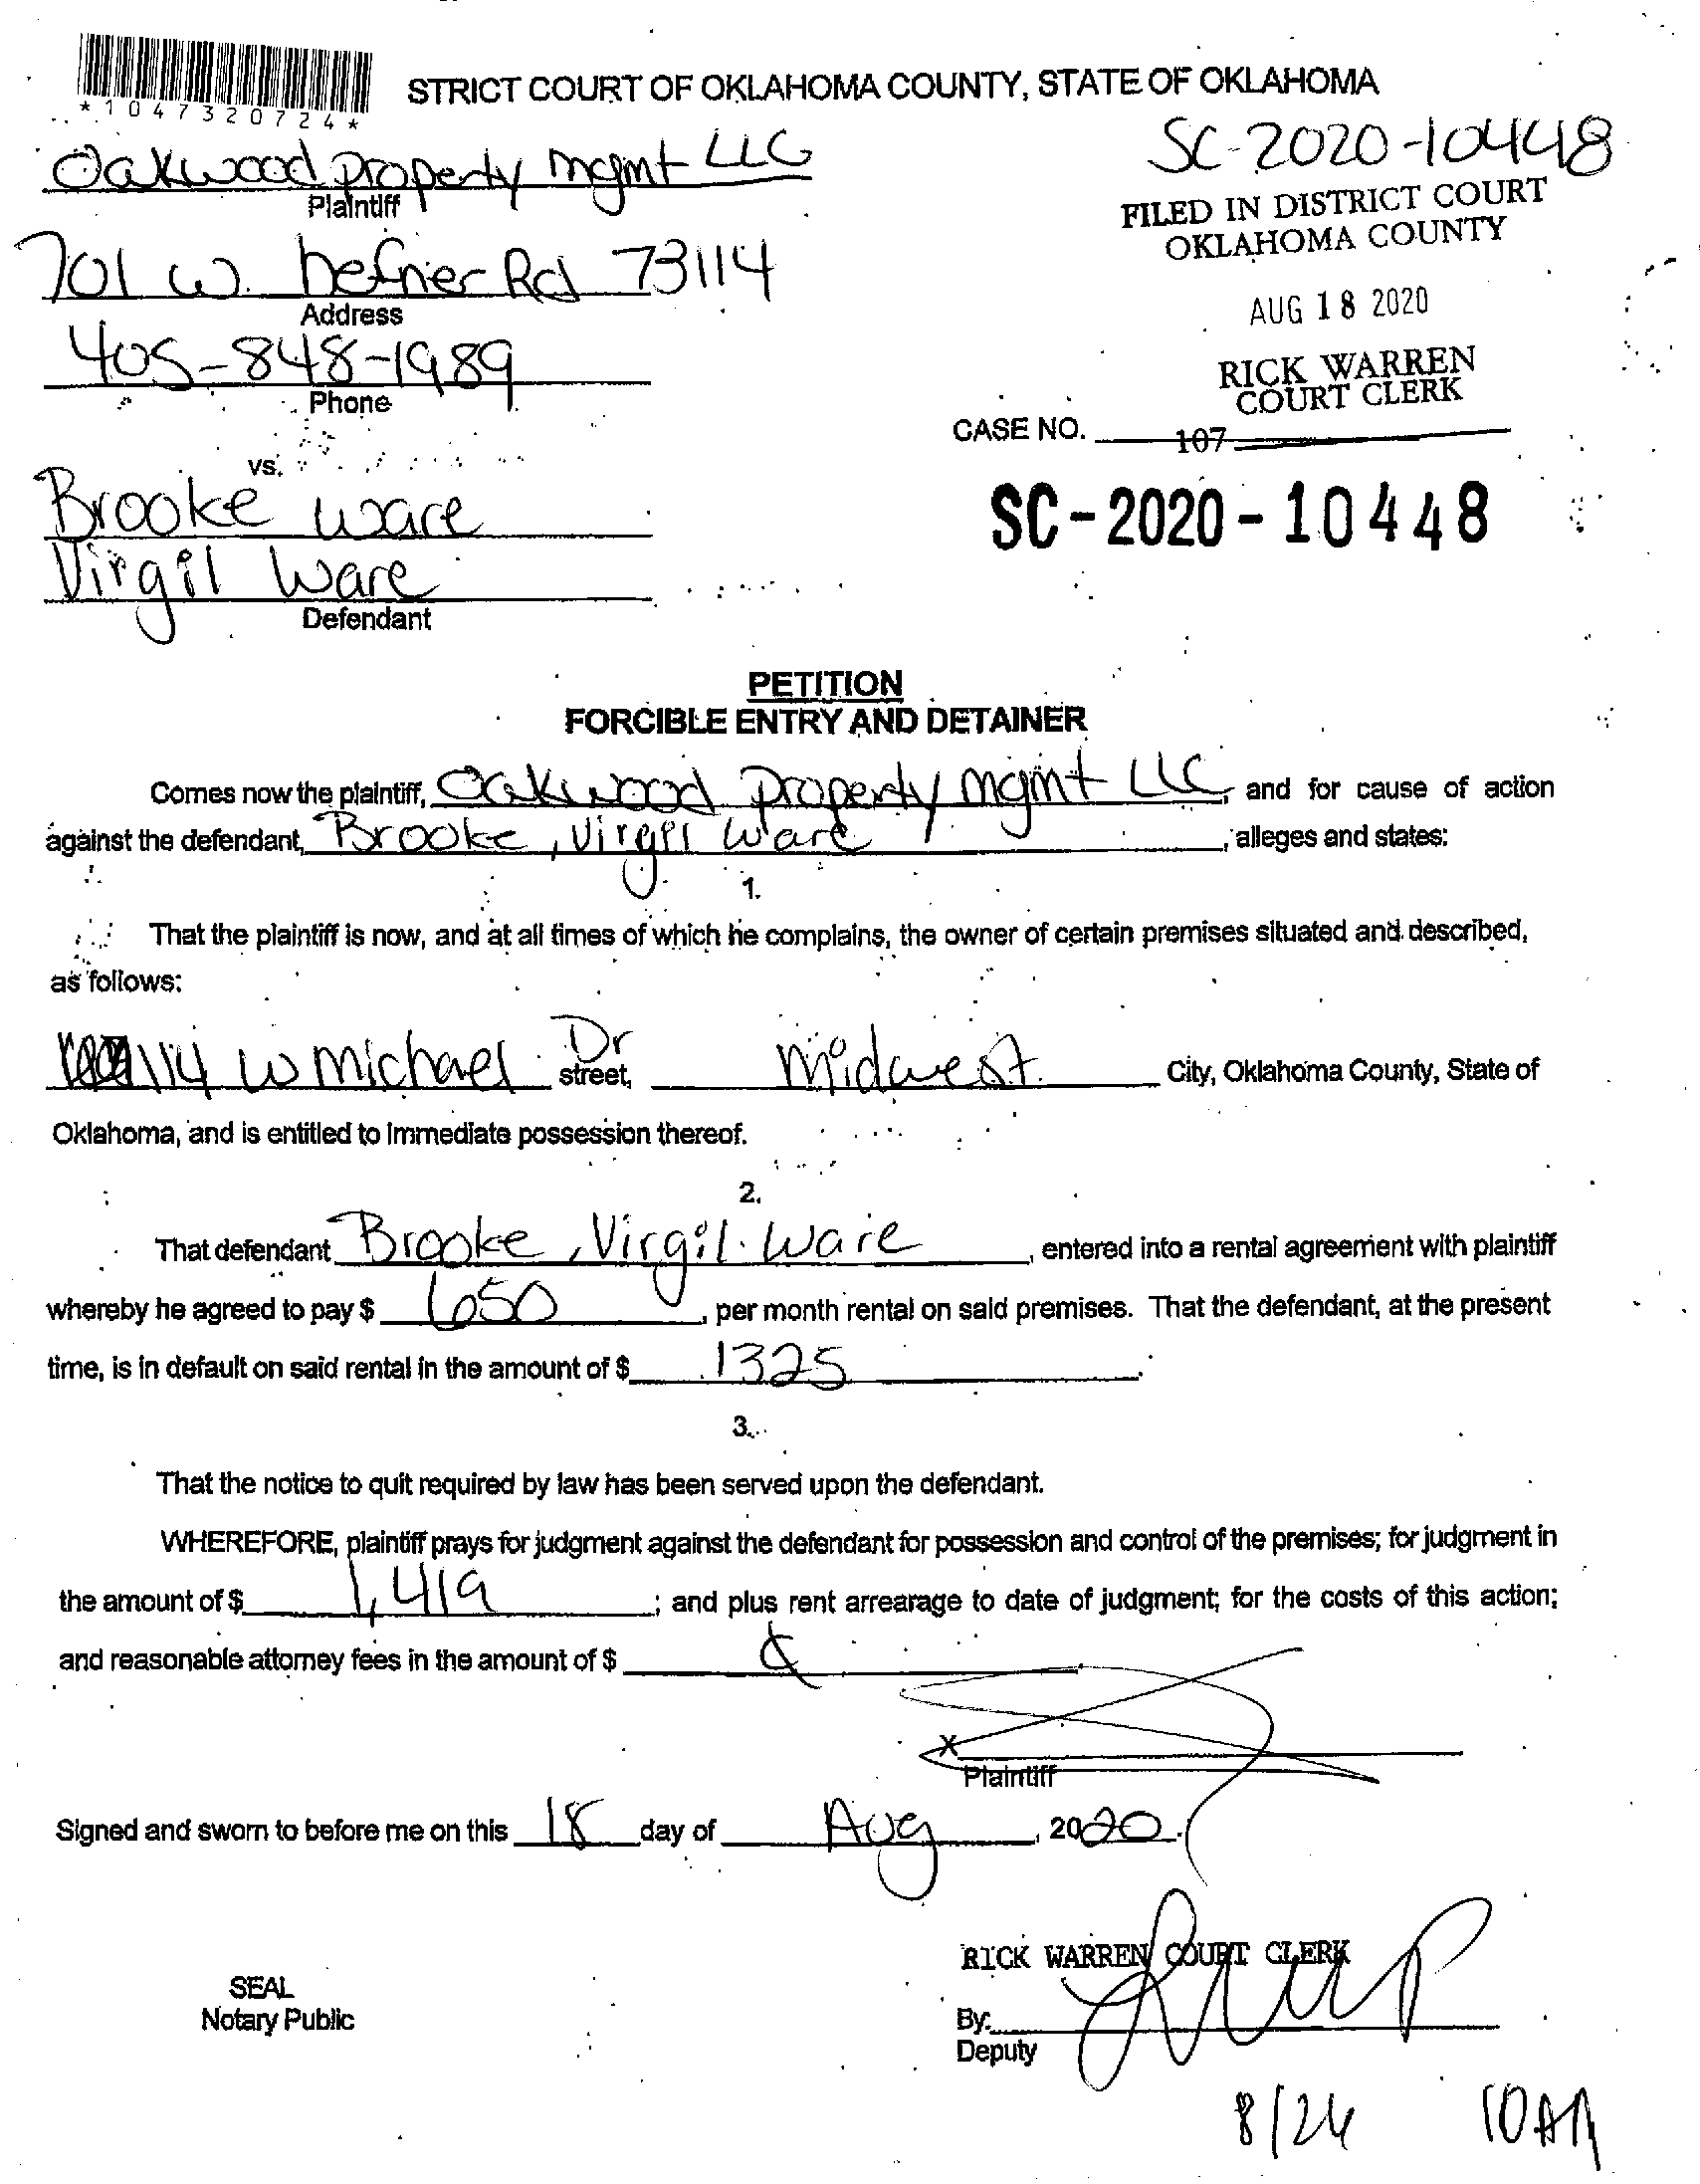 *1047320724*
STRICT COURT OF OKLAHOMA COUNTY, STATE OF OKLAHOMA
Oakwood property mgmt LLC
Plaintiff
SC-2020-10448
FILED IN DISTRICT COURT
OKLAHOMA COUNTY
701 W. hefner Rd 73114
Address
AUG 18 2020
405-848-1989
Phone
RICK WARREN
COURT CLERK
CASE NO.
107
vs.
Brooke Ware
Virgil Ware
Defendant
SC-2020-10448
PETITION
FORCIBLE ENTRY AND DETAINER
Comes now the plaintiff, Oakwood property mgmt LLC, and for cause of action
against the defendant, Brooke, Virgil Ware, alleges and states:
1.
That the plaintiff is now, and at all times of which he complains, the owner of certain premises situated and described,
as follows:
114 W Michael Dr street, Midwest City, Oklahoma County, State of
Oklahoma, and is entitled to immediate possession thereof.
2.
That defendant Brooke, Virgil Ware, entered into a rental agreement with plaintiff
whereby he agreed to pay $ 650, per month rental on said premises. That the defendant, at the present
time, is in default on said rental in the amount of $ 1325.
3.
That the notice to quit required by law has been served upon the defendant.
WHEREFORE, plaintiff prays for judgment against the defendant for possession and control of the premises; for judgment in
the amount of $ 1,419; and plus rent arrearage to date of judgment; for the costs of this action;
and reasonable attorney fees in the amount of $
X
Plaintiff
Signed and sworn to before me on this 18 day of Aug, 2020.
RICK WARREN COURT CLERK
SEAL
Notary Public
By:
Deputy
8/24 10AM